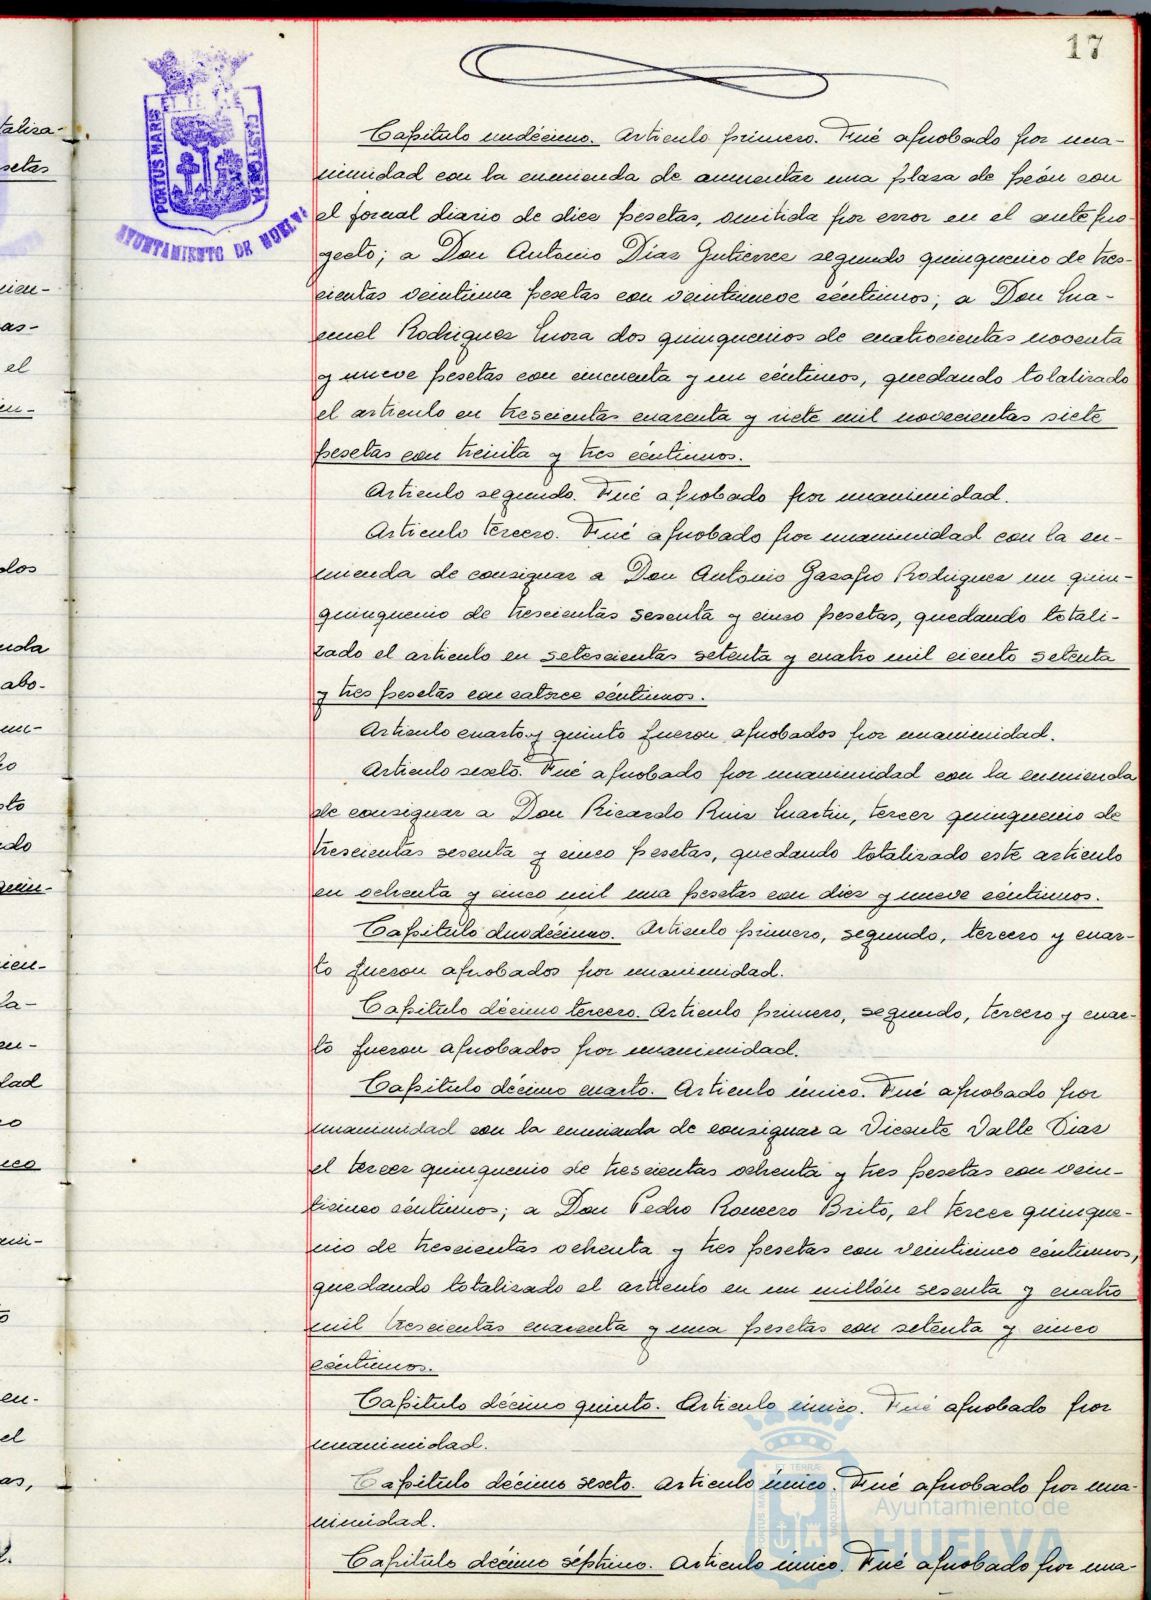 17
PORTUS MARIS ET TERRÆ CUSTODIA
AYUNTAMIENTO DE HUELVA
Capitulo undécimo. Articulo primero. Fué aprobado por una-
nimidad con la enmienda de aumentar una plaza de peón con
el jornal diario de diez pesetas, omitida por error en el antepro-
yecto; a Don Antonio Díaz Gutierrez segundo quinquenio de tres-
cientas veintiuna pesetas con veintinueve céntimos; a Don Ma-
nuel Rodriguez Mora dos quinquenios de cuatrocientas noventa
y nueve pesetas con cincuenta y un céntimos, quedando totalizado
el articulo en trescientas cuarenta y siete mil novecientas siete
pesetas con treinta y tres céntimos.
Articulo segundo. Fué aprobado por unanimidad.
Articulo tercero. Fué aprobado por unanimidad con la en-
mienda de consignar a Don Antonio Gazapo Rodriguez un quin-
quinquenio de trescientas sesenta y cinco pesetas, quedando totali-
zado el articulo en setescientas setenta y cuatro mil ciento setenta
y tres pesetas con catorce céntimos.
Articulo cuarto y quinto fueron aprobados por unanimidad.
Articulo sexto. Fué aprobado por unanimidad con la enmienda
de consignar a Don Ricardo Ruiz Martin, tercer quinquenio de
trescientas sesenta y cinco pesetas, quedando totalizado este articulo
en ochenta y cinco mil una pesetas con diez y nueve céntimos.
Capitulo duodécimo. Articulo primero, segundo, tercero y cuar-
to fueron aprobados por unanimidad.
Capitulo décimo tercero. Articulo primero, segundo, tercero y cuar-
to fueron aprobados por unanimidad.
Capitulo décimo cuarto. Articulo único. Fué aprobado por
unanimidad con la enmienda de consignar a Vicente Valle Diaz
el tercer quinquenio de trescientas ochenta y tres pesetas con vein-
ticinco céntimos; a Don Pedro Romero Brito, el tercer quinque-
nio de trescientas ochenta y tres pesetas con veinticinco céntimos,
quedando totalizado el articulo en un millón sesenta y cuatro
mil trescientas cuarenta y una pesetas con setenta y cinco
céntimos.
Capitulo décimo quinto. Articulo único. Fué aprobado por
unanimidad.
Capitulo décimo sexto. Articulo único. Fué aprobado por una-
nimidad.
Capitulo décimo séptimo. Articulo único. Fué aprobado por una-
Ayuntamiento de
HUELVA